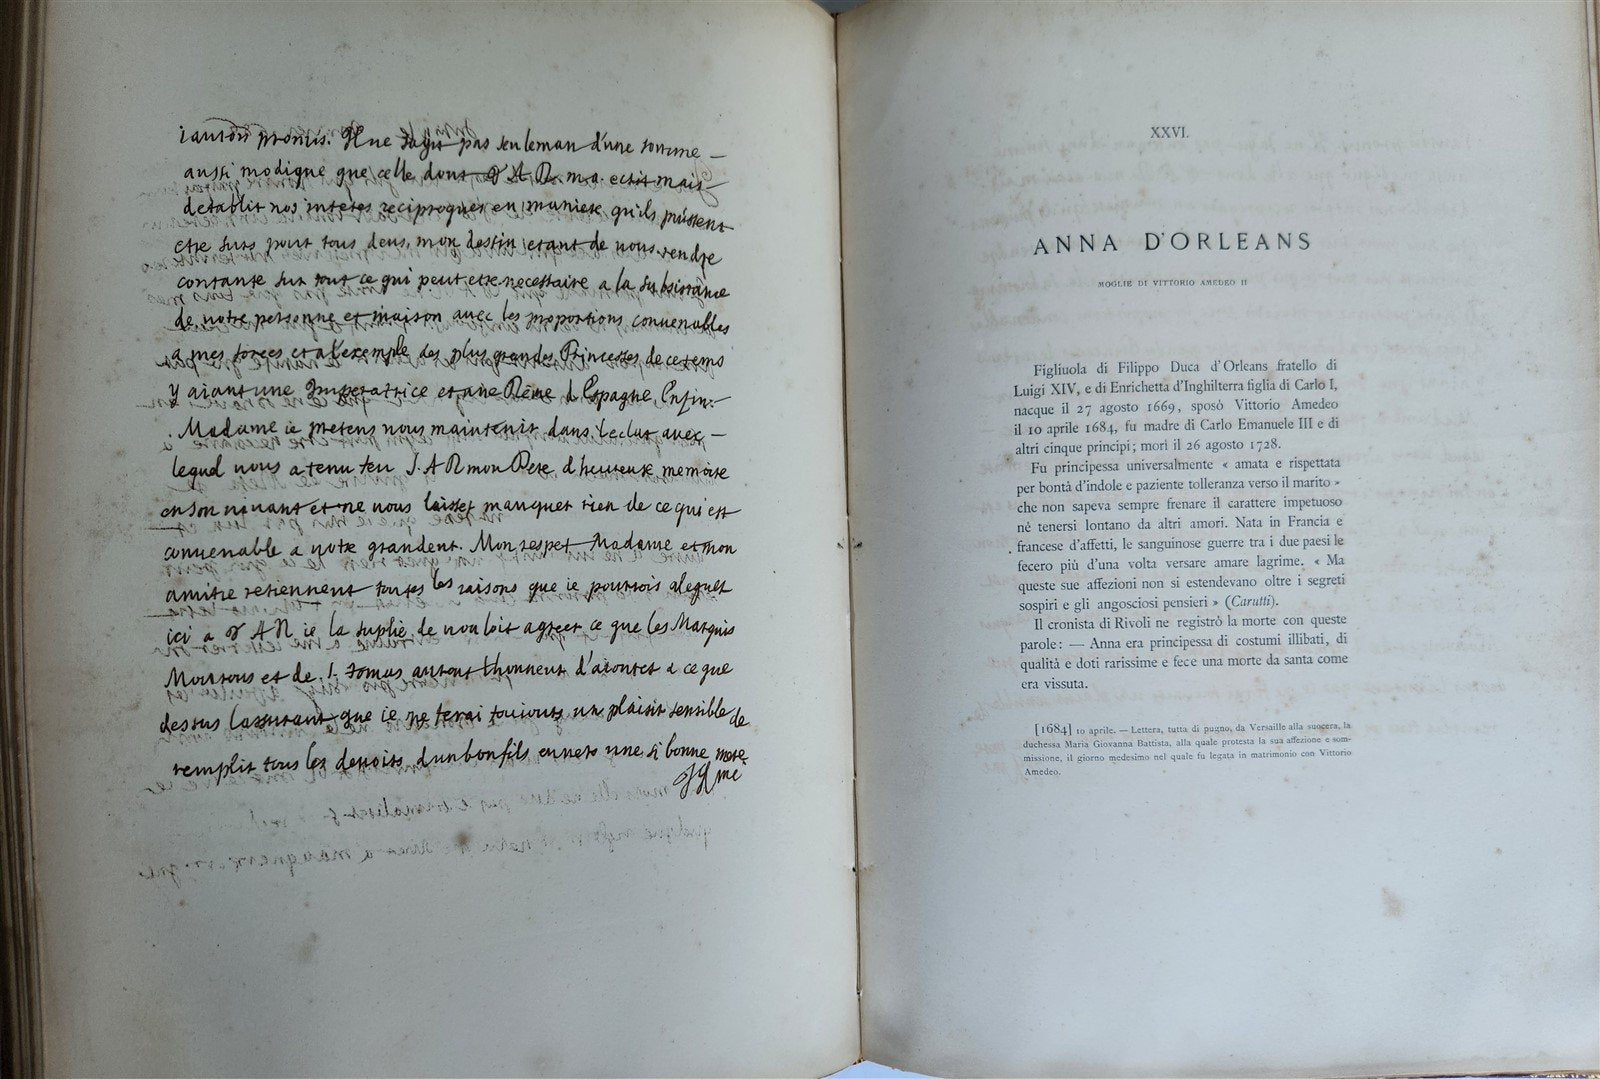 i auron promis. Il ne sagit pas seuleman d'une somme —
aussi modique que celle dont V A R m a ecrit mais
detablir nos interes reciproques en maniere qu'ils puissent
etre surs pour tous deus, mon destin etant de vous rendre
contante sur tout ce qui peut etre necessaire a la subsistance
de votre personne et maison avec les proportions convenables
a mes forces et a l'exemple des plus grandes Princesses de ce tems
y aiant une Imperatrice et une Reine d Espagne, Enfin.—
Madame ie pretens vous maintenir dans leclat avec —
lequel vous a tenu feu S. A R mon Pere d heureuse memoire
en son vivant et ne vous laisser manquer rien de ce qui est
convenable a votre grandeur. Mon respet Madame et mon
amitie retiennent toutes les raisons que ie pourrois aleguer
ici a V A R ie la suplie de vouloir agreer ce que les Marquis
et de S. Tomas auront lhonneur d'aiouter a ce que
dessus lassurant que ie me ferai touiours un plaisir sensible de
remplir tous les devoirs dun bon fils envers une si bonne mere
XXVI.
ANNA D'ORLEANS
MOGLIE DI VITTORIO AMEDEO II
Figliuola di Filippo Duca d'Orleans fratello di
Luigi XIV, e di Enrichetta d'Inghilterra figlia di Carlo I,
nacque il 27 agosto 1669, sposò Vittorio Amedeo
il 10 aprile 1684, fu madre di Carlo Emanuele III e di
altri cinque principi; morì il 26 agosto 1728.
Fu principessa universalmente « amata e rispettata
per bontà d'indole e paziente tolleranza verso il marito »
che non sapeva sempre frenare il carattere impetuoso
né tenersi lontano da altri amori. Nata in Francia e
francese d'affetti, le sanguinose guerre tra i due paesi le
fecero più d'una volta versare amare lagrime. « Ma
queste sue affezioni non si estendevano oltre i segreti
sospiri e gli angosciosi pensieri » (Carutti).
Il cronista di Rivoli ne registrò la morte con queste
parole: — Anna era principessa di costumi illibati, di
qualità e doti rarissime e fece una morte da santa come
era vissuta.
[1684] 10 aprile. — Lettera, tutta di pugno, da Versaille alla suocera, la
duchessa Maria Giovanna Battista, alla quale protesta la sua affezione e som-
missione, il giorno medesimo nel quale fu legata in matrimonio con Vittorio
Amedeo.